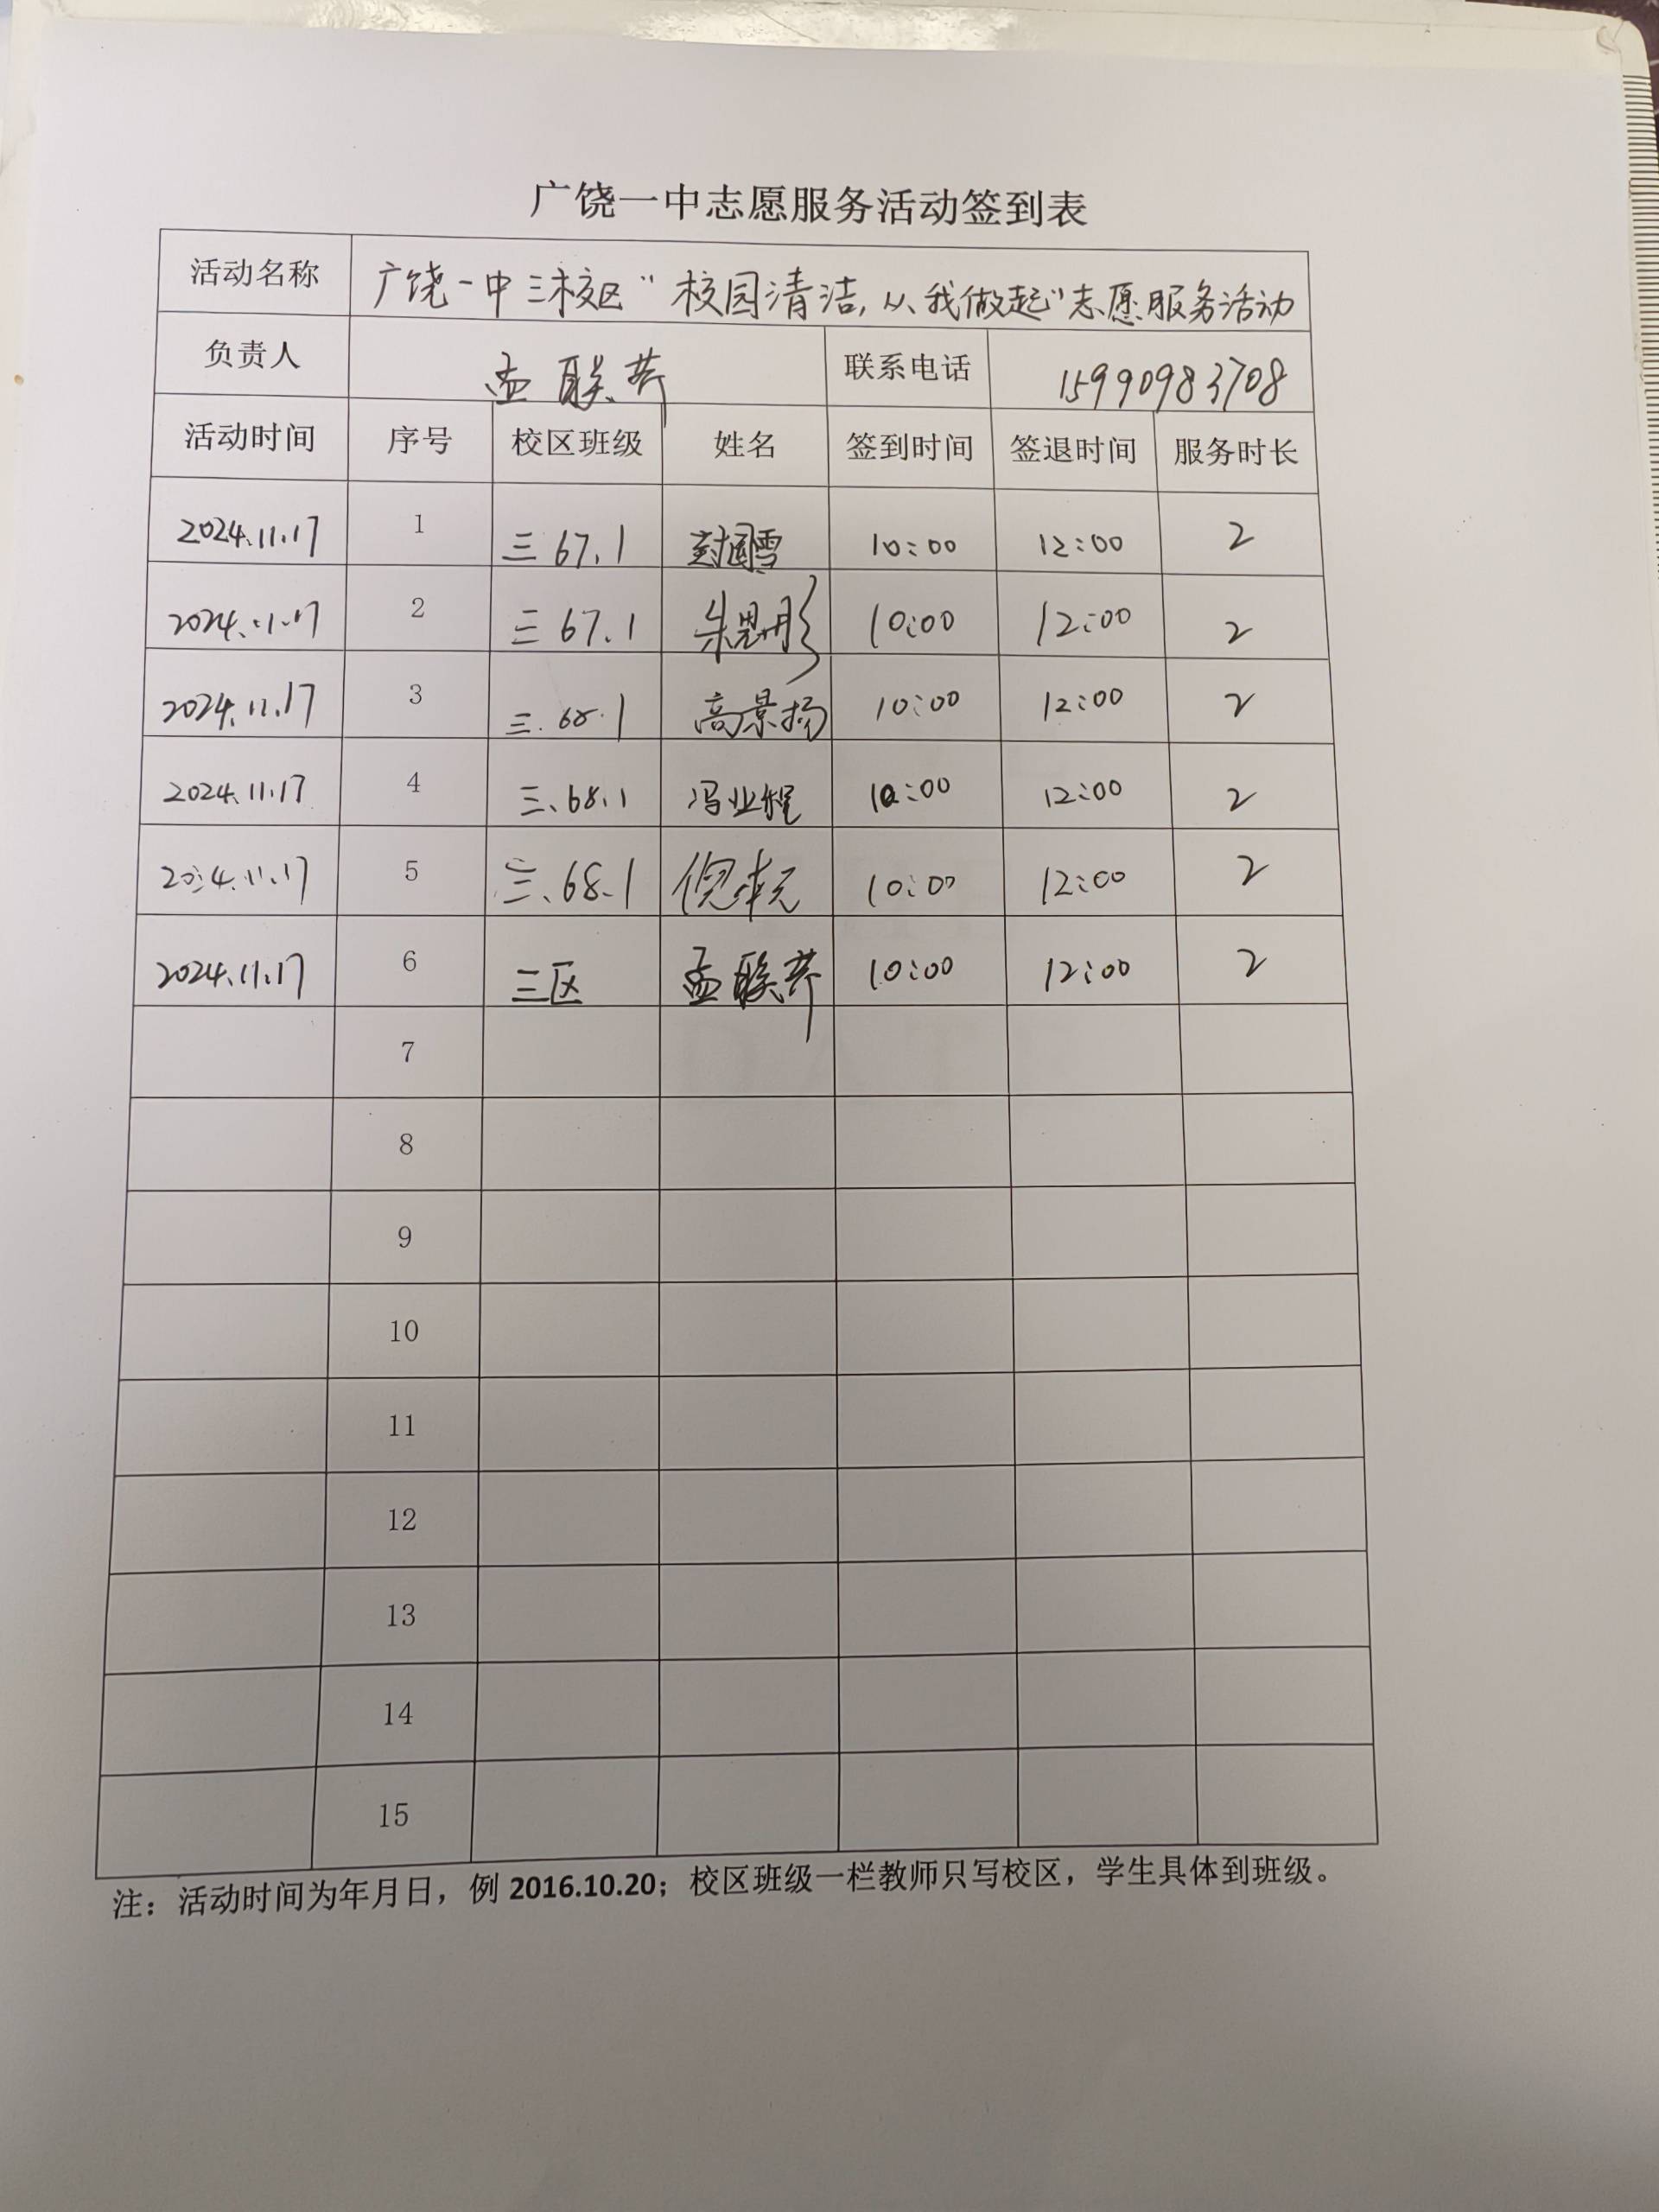 广饶一中志愿服务活动签到表
活动名称 广饶一中三校区“校园清洁,从我做起”志愿服务活动
负责人 孟联芹 联系电话 15990983708
活动时间 序号 校区班级 姓名 签到时间 签退时间 服务时长
2024.11.17 1 三67.1 封国雪 10:00 12:00 2
2024.11.17 2 三67.1 朱思彤 10:00 12:00 2
2024.11.17 3 三.68.1 高景扬 10:00 12:00 2
2024.11.17 4 三、68.1 冯业程 10:00 12:00 2
2024.11.17 5 三、68.1 倪 10:00 12:00 2
2024.11.17 6 三区 孟联芹 10:00 12:00 2
7
8
9
10
11
12
13
14
15
注：活动时间为年月日，例 2016.10.20；校区班级一栏教师只写校区，学生具体到班级。